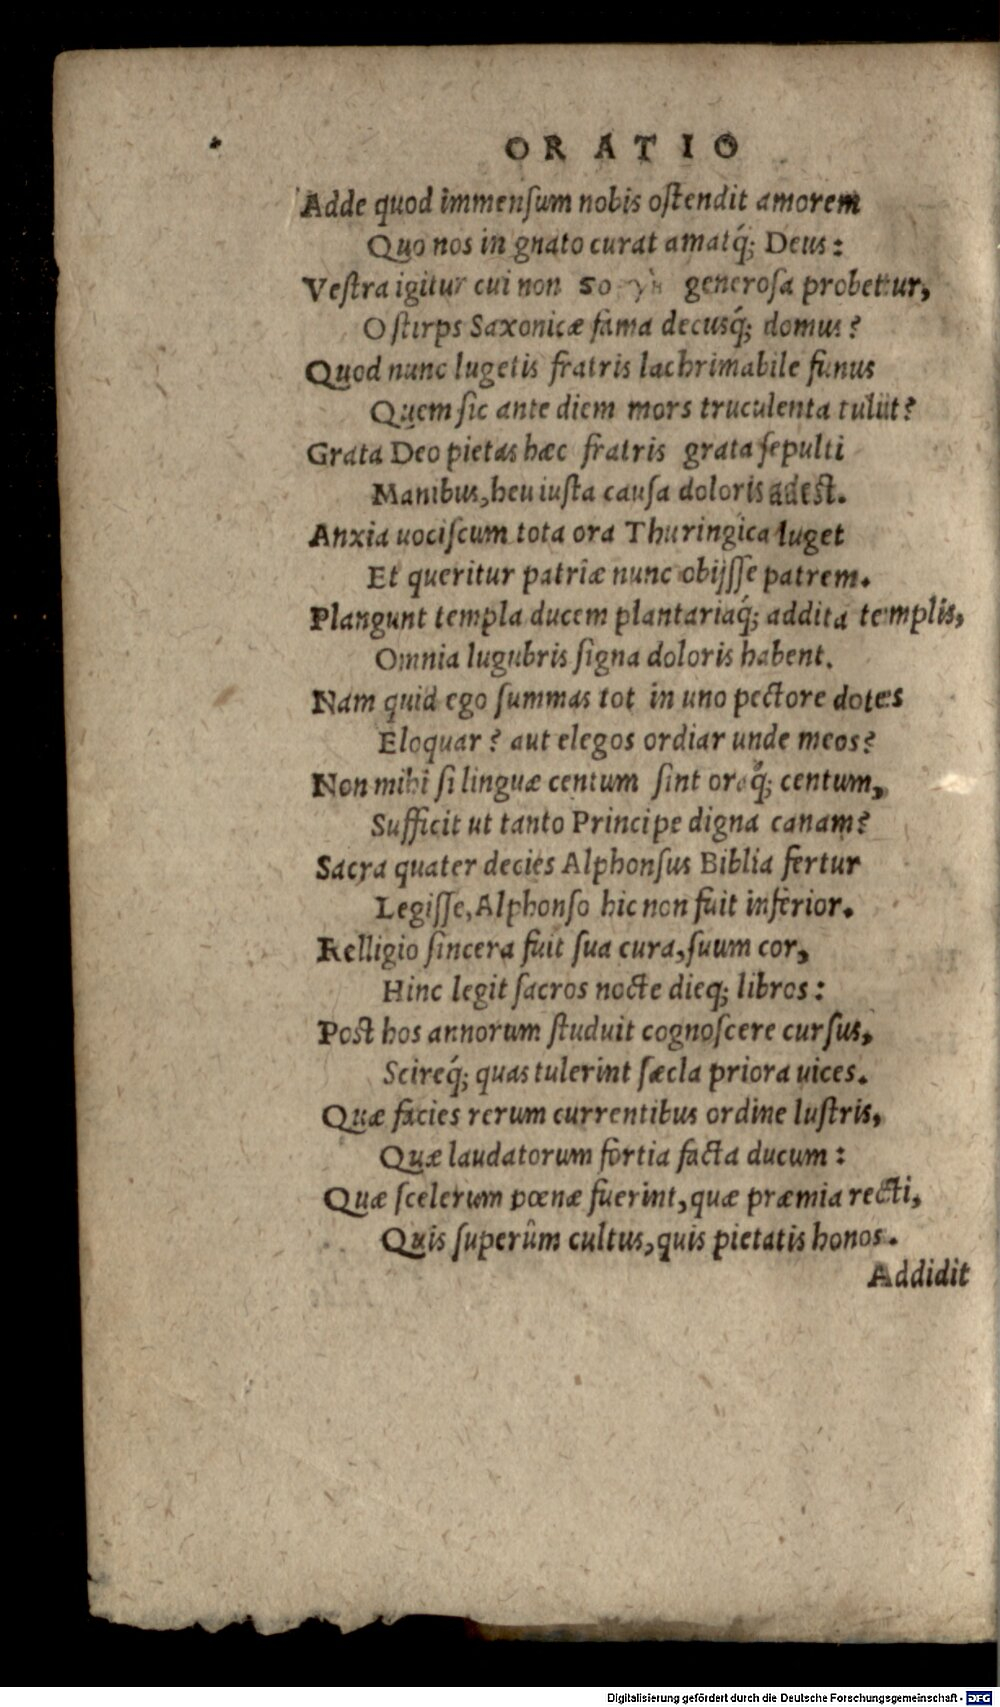 ORATIO
Adde quod immenſum nobis oſtendit amorem
Quo nos in gnato curat amatq́; Deus:
Veſtra igitur cui non generoſa probetur,
O ſtirps Saxonicæ fama decusq́; domus?
Quod nunc lugetis fratris lachrimabile funus
Quem ſic ante diem mors truculenta tulit?
Grata Deo pietas hæc fratris grata ſepulti
Manibus, heu iuſta cauſa doloris adeſt.
Anxia uociſcum tota ora Thuringica luget
Et queritur patriæ nunc obijſſe patrem.
Plangunt templa ducem plantariaq́; addita templis,
Omnia lugubris ſigna doloris habent.
Nam quid ego ſummas tot in uno pectore dotes
Eloquar? aut elegos ordiar unde meos?
Non mihi ſi linguæ centum ſint oraq́; centum,
Sufficit ut tanto Principe digna canam?
Sacra quater decies Alphonſus Biblia fertur
Legiſſe, Alphonſo hic non fuit inferior.
Relligio ſincera fuit ſua cura, ſuum cor,
Hinc legit ſacros nocte dieq; libros:
Poſt hos annorum ſtuduit cognoſcere curſus,
Scireq́; quas tulerint ſæcla priora uices.
Quæ facies rerum currentibus ordine luſtris,
Quæ laudatorum fortia facta ducum:
Quæ ſcelerum pœnæ fuerint, quæ præmia recti,
Quis ſuperûm cultus, quis pietatis honos.
Addidit
Digitalisierung gefördert durch die Deutsche Forschungsgemeinschaft - DFG